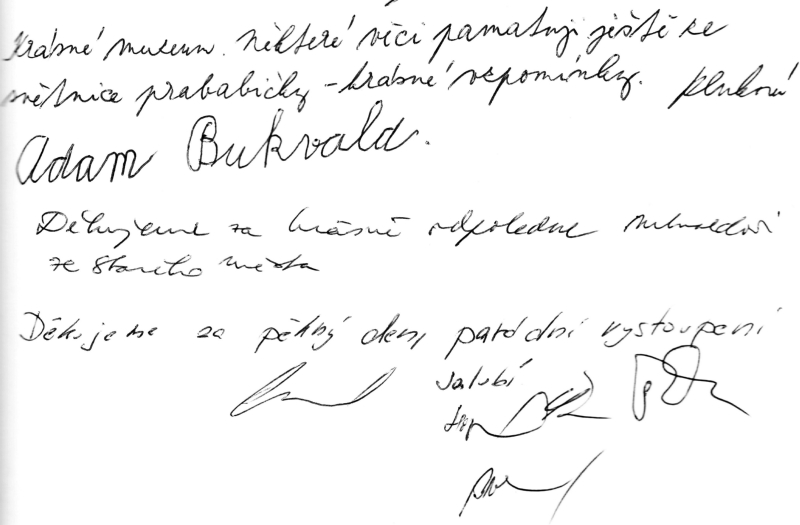 Krásné museum. Některé věci pamatuji ještě ze
světnice prababičky - krásné vzpomínky.
Adam Bukvald.
Děkujeme za krásné odpoledne
ze Starého města
Děkujeme za pěkný den, parádní vystoupení
Jalubí